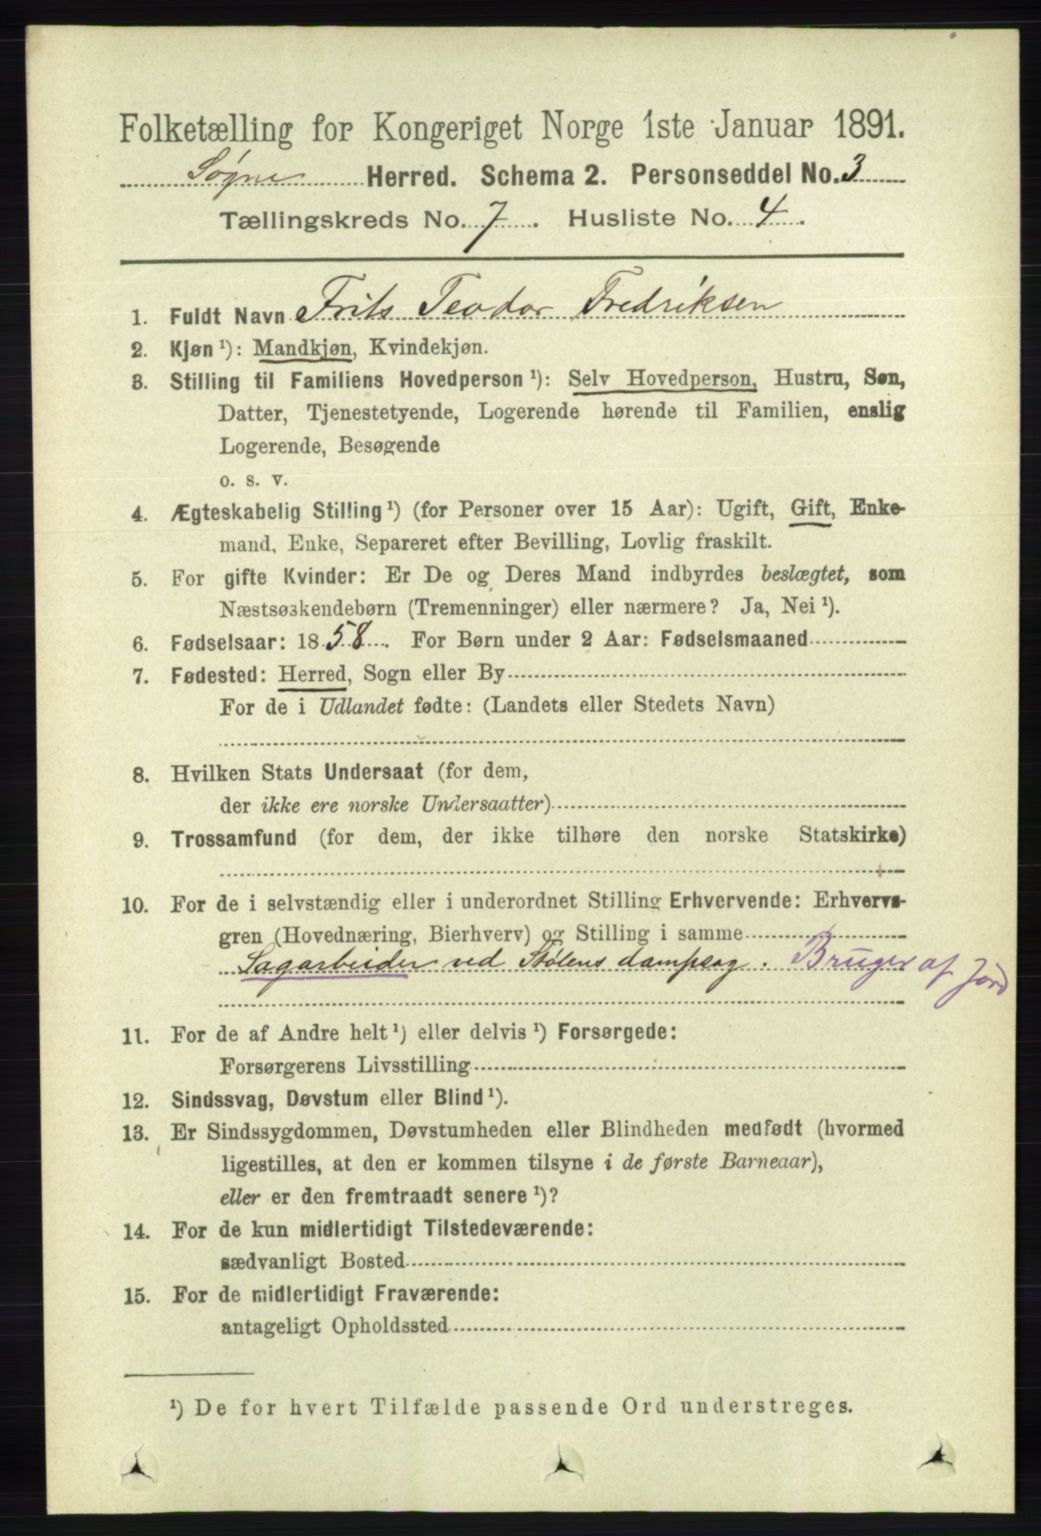 Folketælling for Kongeriget Norge 1ste Januar 1891.
Søgne Herred. Schema 2. Personseddel No. 3
Tællingskreds No. 7. Husliste No. 4.
1. Fuldt Navn Frits Teodor Fredriksen
2. Kjøn ¹): Mandkjøn, Kvindekjøn.
3. Stilling til Familiens Hovedperson ¹): Selv Hovedperson, Hustru, Søn,
Datter, Tjenestetyende, Logerende hørende til Familien, enslig
Logerende, Besøgende
o. s. v.
4. Ægteskabelig Stilling ¹) (for Personer over 15 Aar): Ugift, Gift, Enke-
mand, Enke, Separeret efter Bevilling, Lovlig fraskilt.
5. For gifte Kvinder: Er De og Deres Mand indbyrdes beslægtet, som
Næstsøskendebørn (Tremenninger) eller nærmere? Ja, Nei ¹).
6. Fødselsaar: 1858. For Børn under 2 Aar: Fødselsmaaned
7. Fødested: Herred, Sogn eller By
For de i Udlandet fødte: (Landets eller Stedets Navn)
8. Hvilken Stats Undersaat (for dem,
der ikke ere norske Undersaatter)
9. Trossamfund (for dem, der ikke tilhøre den norske Statskirke)
10. For de i selvstændig eller i underordnet Stilling Erhvervende: Erhvervs-
gren (Hovednæring, Bierhverv) og Stilling i samme
Sagarbeider ved Stølens dampsag. Bruger af Jord
11. For de af Andre helt ¹) eller delvis ¹) Forsørgede:
Forsørgerens Livsstilling
12. Sindssvag, Døvstum eller Blind ¹).
13. Er Sindssygdommen, Døvstumheden eller Blindheden medfødt (hvormed
ligestilles, at den er kommen tilsyne i de første Barneaar),
eller er den fremtraadt senere ¹)?
14. For de kun midlertidigt Tilstedeværende:
sædvanligt Bosted
15. For de midlertidigt Fraværende:
antageligt Opholdssted
¹) De for hvert Tilfælde passende Ord understreges.